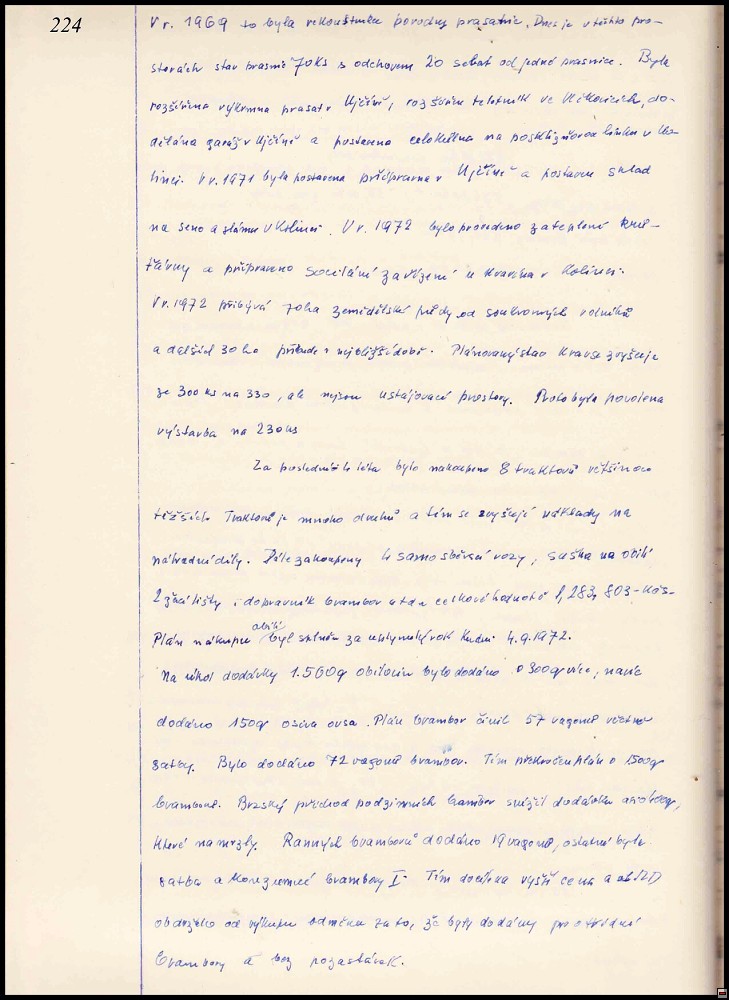 224
V r. 1969 to byla rekonstrukce porodny prasnic. Dnes je v těchto pro-
storách stav prasnic 70 ks s odchovem 20 selat od jedné prasnice. Byla
rozšířena výkrmna prasat v Ujčíně, rozšířen teletník ve Vlčkovicích, do-
dělána garáž v Ujčíně a postavena ocelokolna na posklizňovou linku v Ko-
linci. V r. 1971 byla postavena přípravna v Ujčíně a postaven sklad
na seno a slámu v Kolinci. V r. 1972 bylo provedeno zateplení
a připraveno sociální zařízení u kravína v Kolinci.
V r. 1972 přibývá 70 ha zemědělské půdy od soukromých rolníků
a dalších 30 ha přibude v nejbližší době. Plánovaný stav krav se zvyšuje
ze 300 ks na 330, ale nejsou ustájovací prostory. Proto byla povolena
výstavba na 230 ks
Za poslední léta bylo nakoupeno 8 traktorů většinou
těžších. Traktorů je mnoho druhů a tím se zvyšují náklady na
náhradní díly. Dále zakoupeny 4 samosběrací vozy, suška na obilí
2 žací lišty i dopravník brambor atd. v celkové hodnotě 1,283,803 - Kčs -
Plán nákupu obilí byl splněn za uplynulý rok ke dni 4.9.1972.
Na úkol dodávky 1.560 q obilovin bylo dodáno o 300 q více, navíc
dodáno 150 q osiva ovsa. Plán brambor činil 57 vagonů včetně
satby. Bylo dodáno 72 vagonů brambor. Tím překročen plán o 1500 q
brambor. Brzský příchod podzimních snížil dodávku
které namrzly. Ranných bramborů dodáno 19 vagonů, ostatní byla
satba a konzumní brambory I. Tím docílena vyšší cena a JZD
obdrželo od výkupu odměnu za to, že byly dodány
brambory a bez pozastávek.